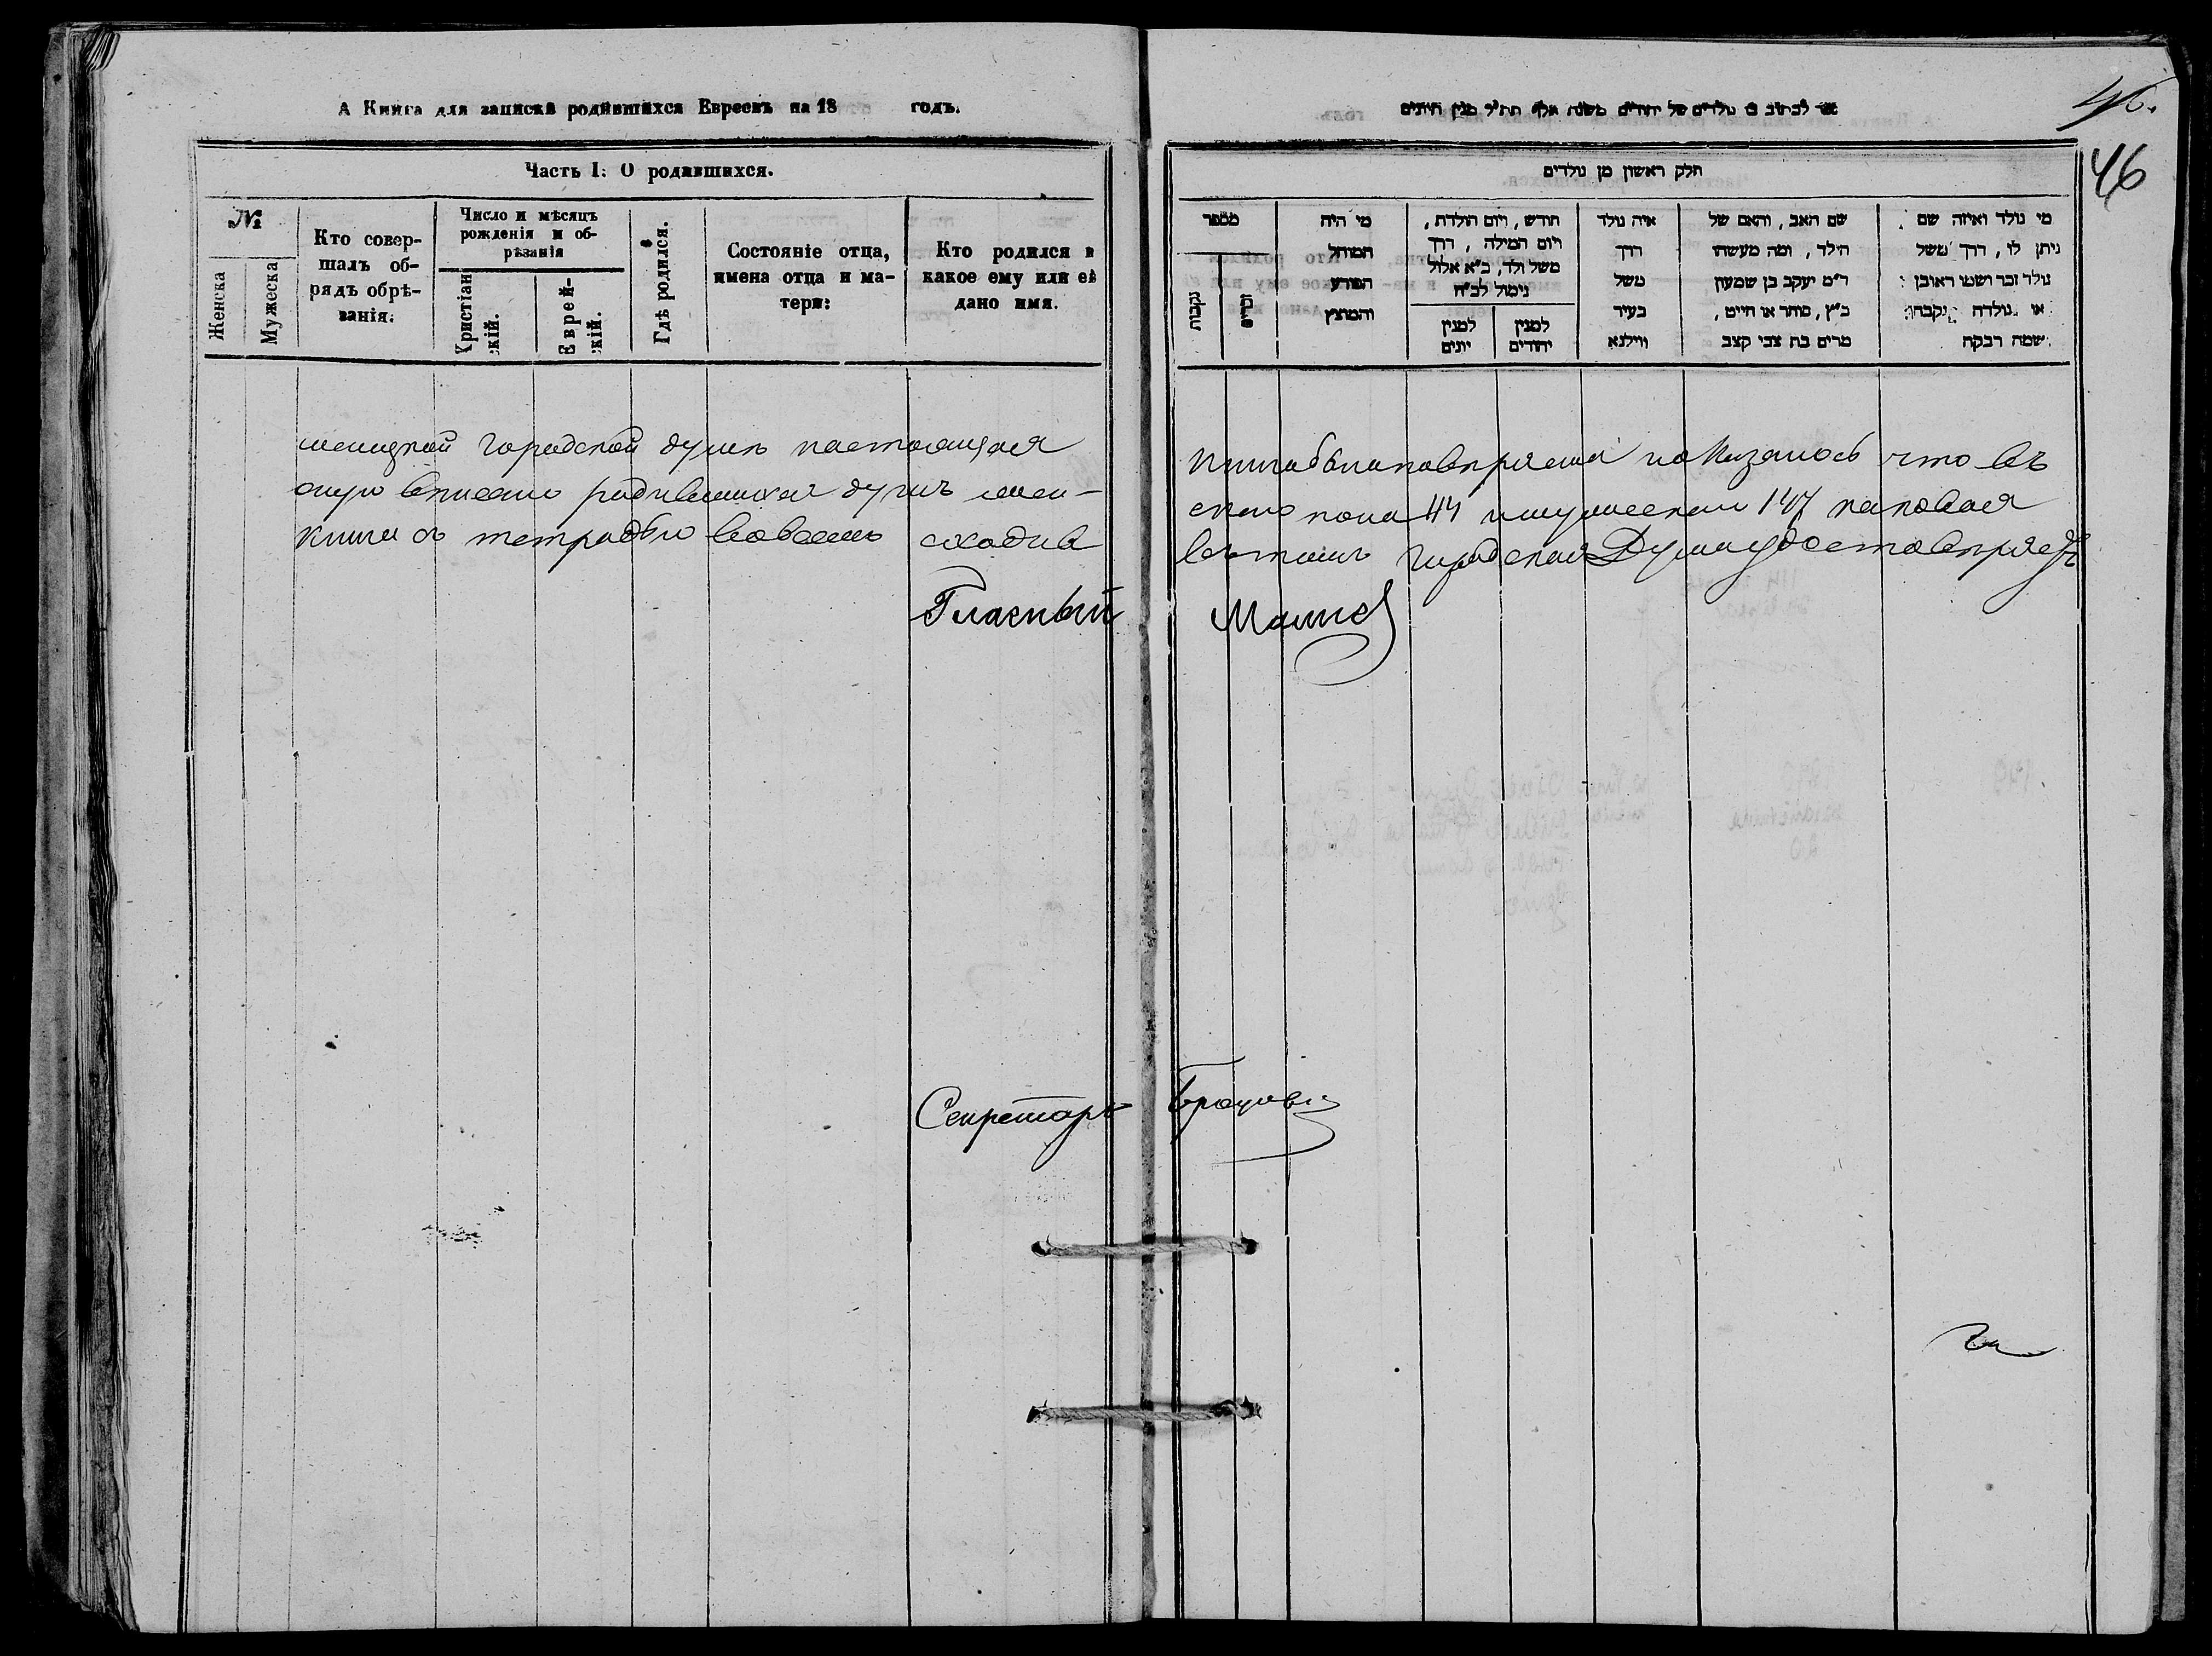 А Книга для записки родившихся Евреевъ на 18 годъ.
Часть I. О родившихся.
№
Женска
Мужеска
Кто совер-
шалъ об-
рядъ обрѣ-
занія.
Число и мѣсяцъ
рожденія и об-
рѣзанія
Христіан
скій.
Еврей-
скій.
Гдѣ родился.
Состояніе отца,
имена отца и ма-
тери:
Кто родился и
какое ему или ей
дано имя.
городской думѣ настоящая
оную вписано родившихся душъ жен-
книга съ тетрадью во всемъ сходна
Гласный
Секретарь
46.
46
לכתוב נולדים של יהודים משנת אלף תת״ל מנין היונים
חלק ראשון מן נולדים
מספר
נקבות
זכרים
מי היה
המוהל
הפורע
והמוצץ
חודש, ויום הולדת,
ויום המילה, דרך
משל ולד, כ״א אלול
נימול לכ״ח
למנין
יונים
למנין
יהודים
איה נולד
דרך
משל
בעיר
ווילנא
שם האב, והאם של
הילד, ומה מעשהו
ר״מ יעקב בן שמעון
כ״ץ, סוחר או חייט,
מרים בת צבי קצב
מי נולד ואיזה שם
ניתן לו, דרך משל
נולד זכר ושמו ראובן
או נולדה נקבה
שמה רבקה
книга была повѣряема и оказалось что въ
скаго пола 114 и мужескаго 147 каковая
въ томъ городская Дума удостовѣряетъ